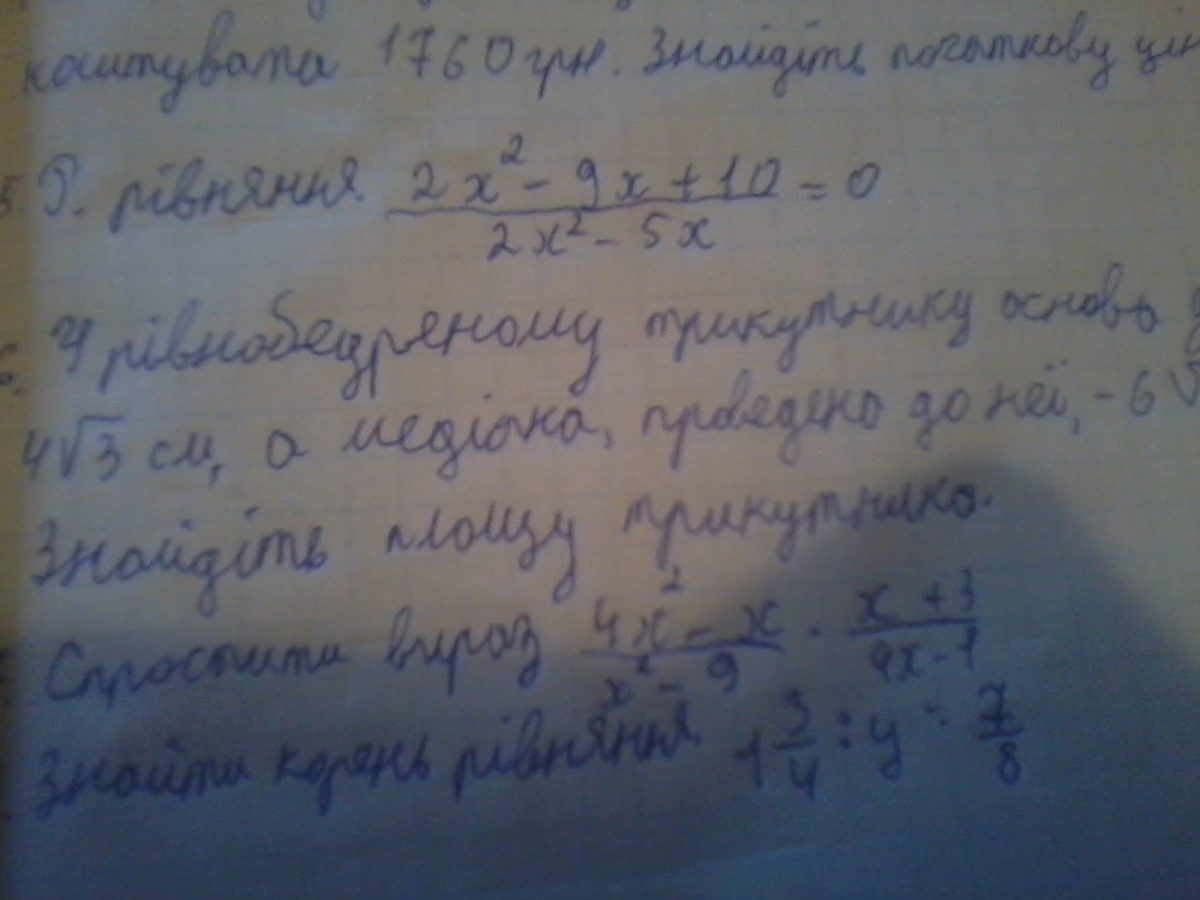 коштувати 1760 грн. Знайдіть початкову цін
5. Р. рівняння (2x² - 9x + 10)/(2x² - 5x) = 0
6. У рівнобедреному трикутнику основа д
4√3 см, а медіана, проведена до неї, - 6√
Знайдіть площу трикутника.
Спростити вираз (4x² - x)/(x² - 9) · (x + 3)/(4x - 1)
Знайти корень рівняння 1 3/4 : y = 7/8